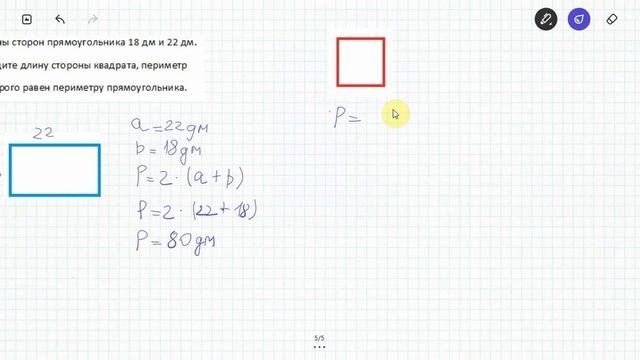 ны сторон прямоугольника 18 дм и 22 дм.
дите длину стороны квадрата, периметр
рого равен периметру прямоугольника.
22
a = 22 дм
b = 18 дм
P = 2 · (a + b)
P = 2 · (22 + 18)
P = 80 дм
P =
5/5